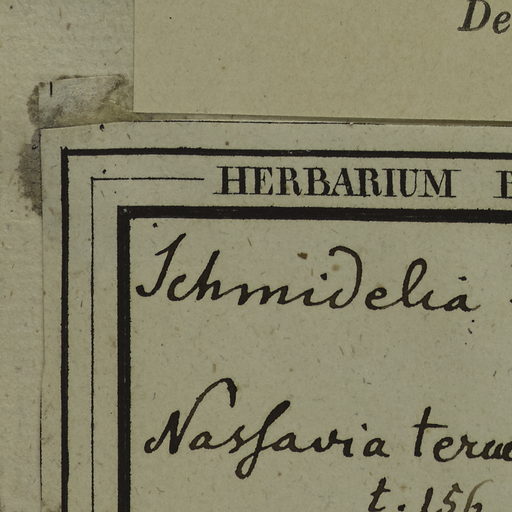 De
HERBARIUM
Schmidelia
Nassavia
t. 156